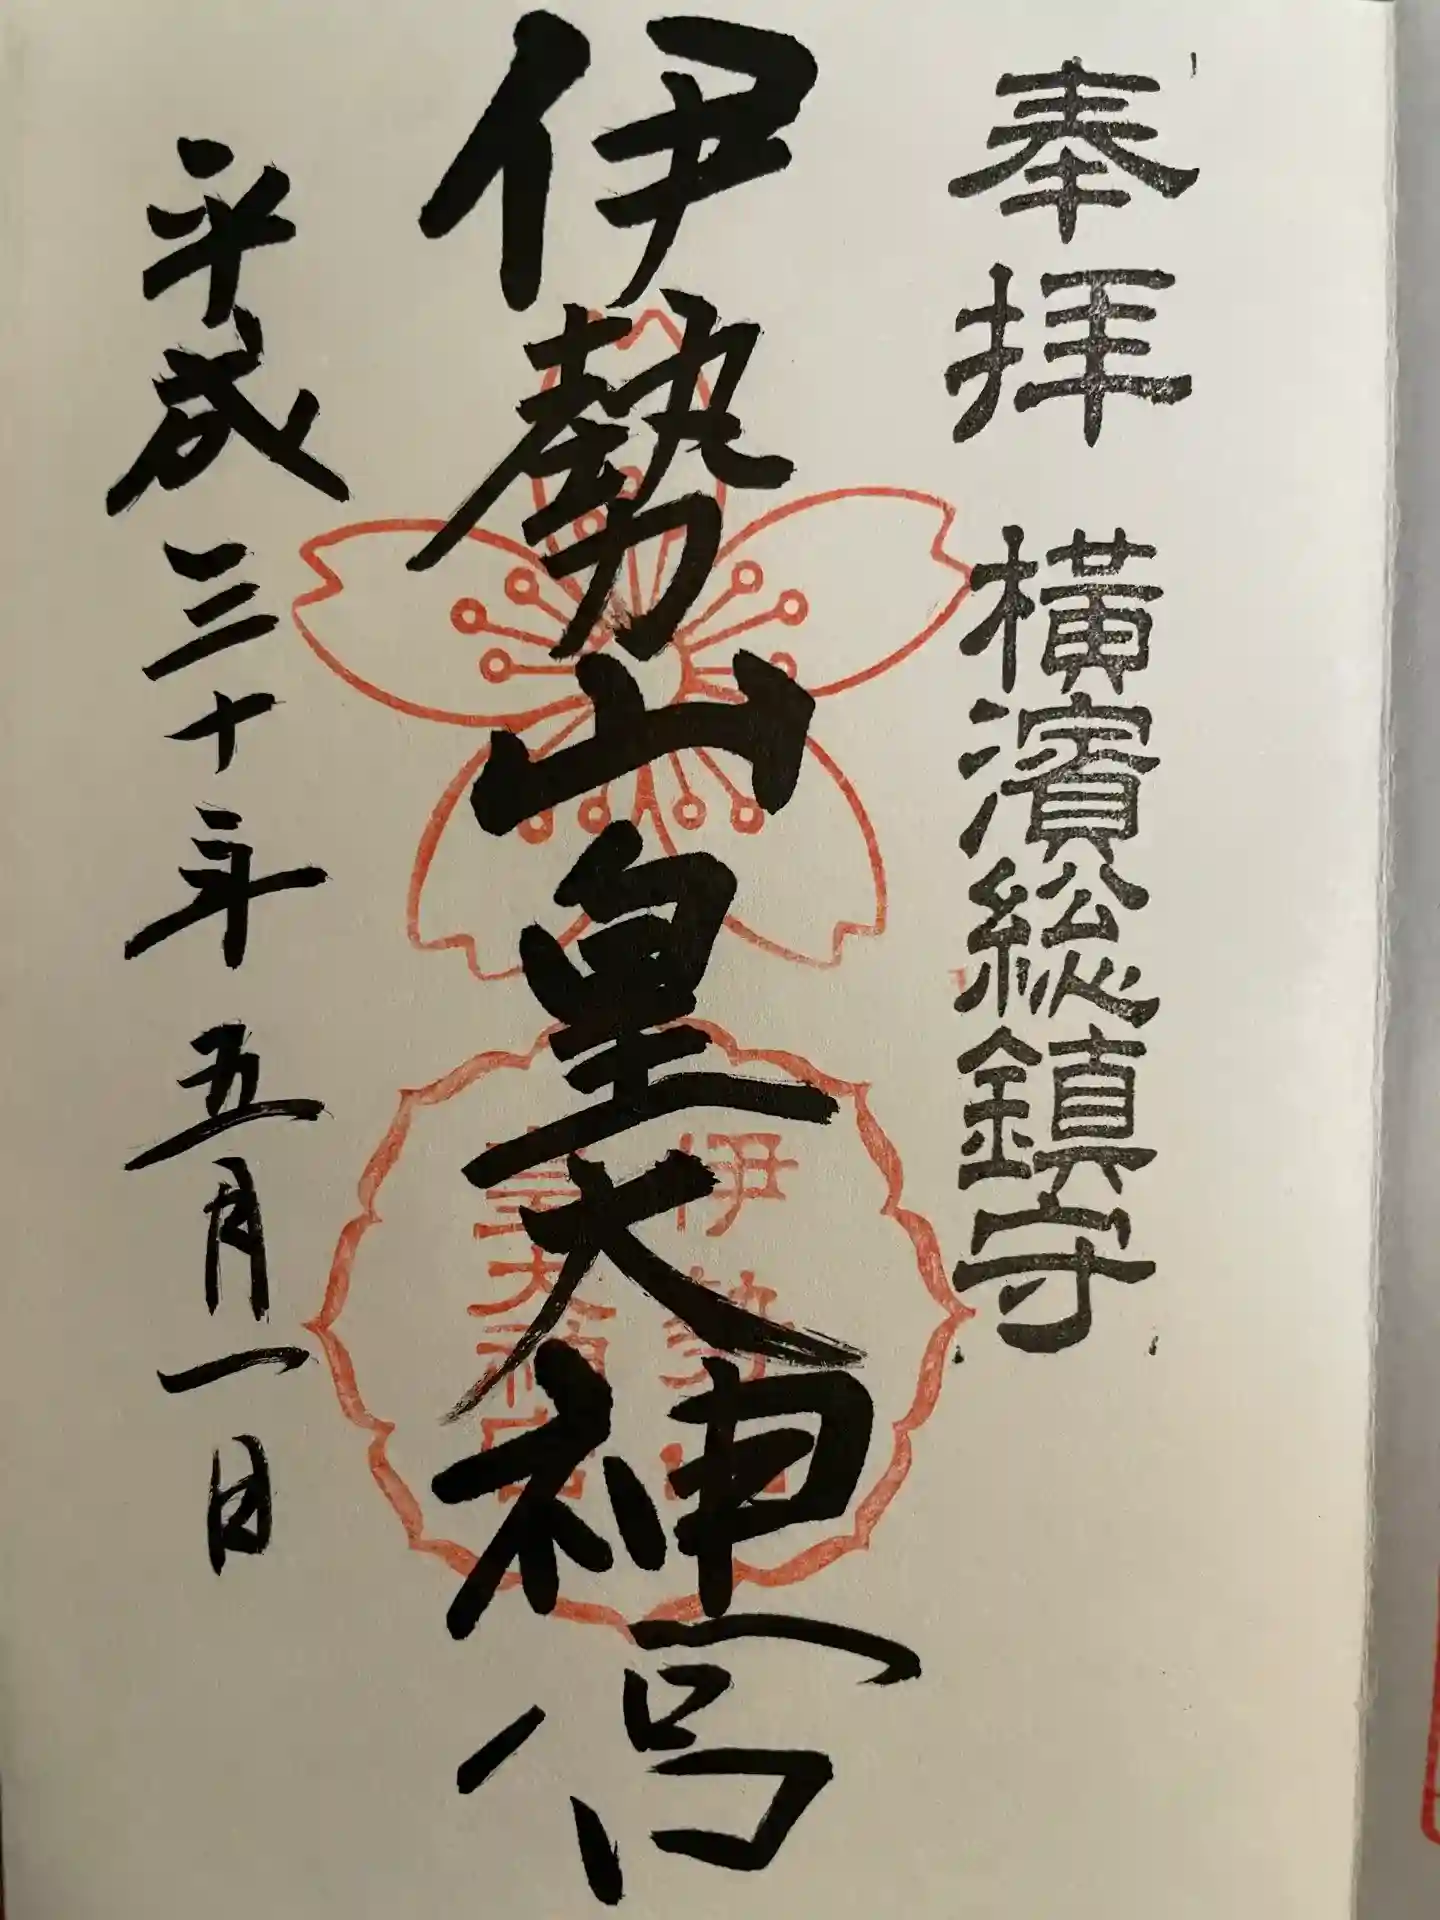 奉拝 横濱総鎮守
伊勢山皇大神宮
伊勢山
皇大神宮
平成三十年五月一日